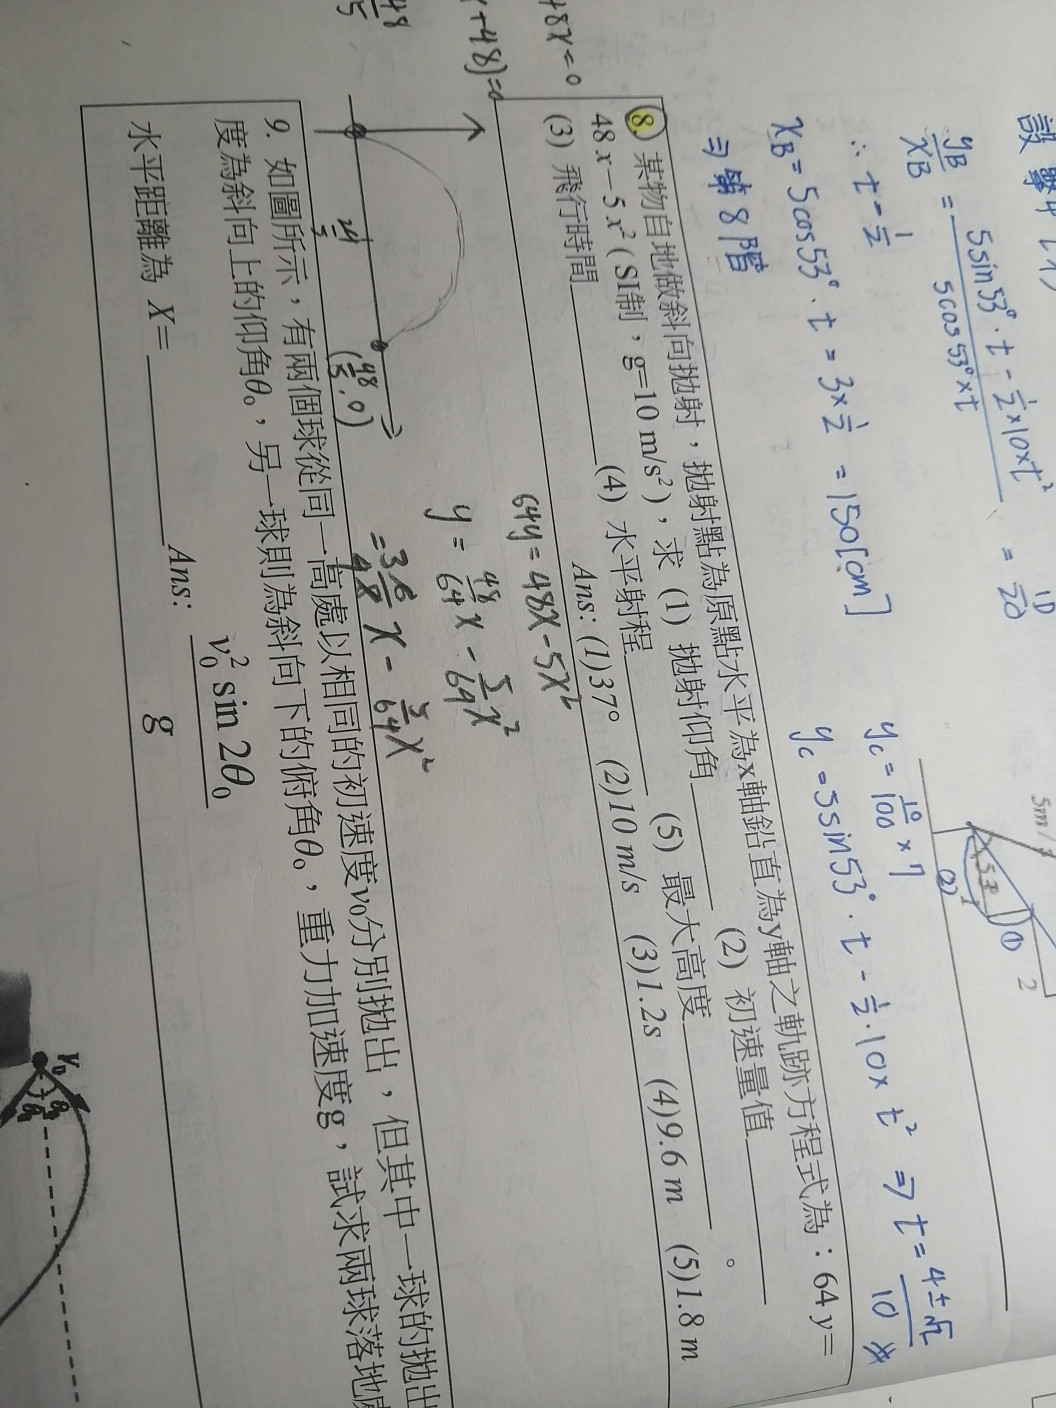 y_B/x_B = (5sin53°·t - 1/2×10×t²)/(5cos53°×t) = 10/20
∴ t = 1/2
x_B = 5cos53°·t = 3×1/2 = 150[cm]
⇒第8階
5m/s
53°
(2)
①
2
y_c = 10/100 × 7
y_c = 5sin53°·t - 1/2·10×t² ⇒ t = (4±√2)/10
8. 某物自地做斜向拋射，拋射點為原點水平為x軸鉛直為y軸之軌跡方程式為：64 y=
48 x－5 x²( SI制，g=10 m/s²)，求 (1) 拋射仰角 (2) 初速量值
(3) 飛行時間 (4) 水平射程 (5) 最大高度 。
Ans: (1)37° (2)10 m/s (3)1.2s (4)9.6 m (5)1.8 m
48x=0
+48)=0
48/5
24/5
(48/5, 0)
64y = 48x-5x²
y = 48/64 x - 5/64 x²
x - 5/64 x²
9. 如圖所示，有兩個球從同一高處以相同的初速度v₀分別拋出，但其中一球的拋出
度為斜向上的仰角θ₀，另一球則為斜向下的俯角θ₀，重力加速度g，試求兩球落地
水平距離為 X= Ans: v₀² sin 2θ₀ / g
V₀
θ₀
θ₀